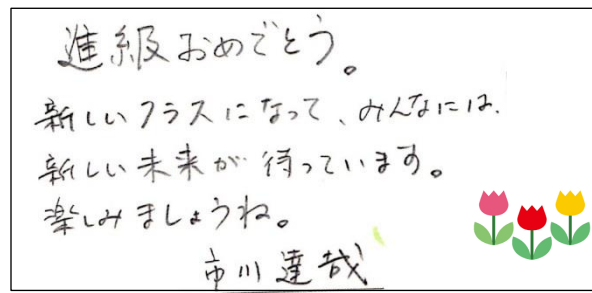 進級おめでとう。
新しいクラスになって、みんなには、
新しい未来が待っています。
楽しみましょうね。
市川達哉